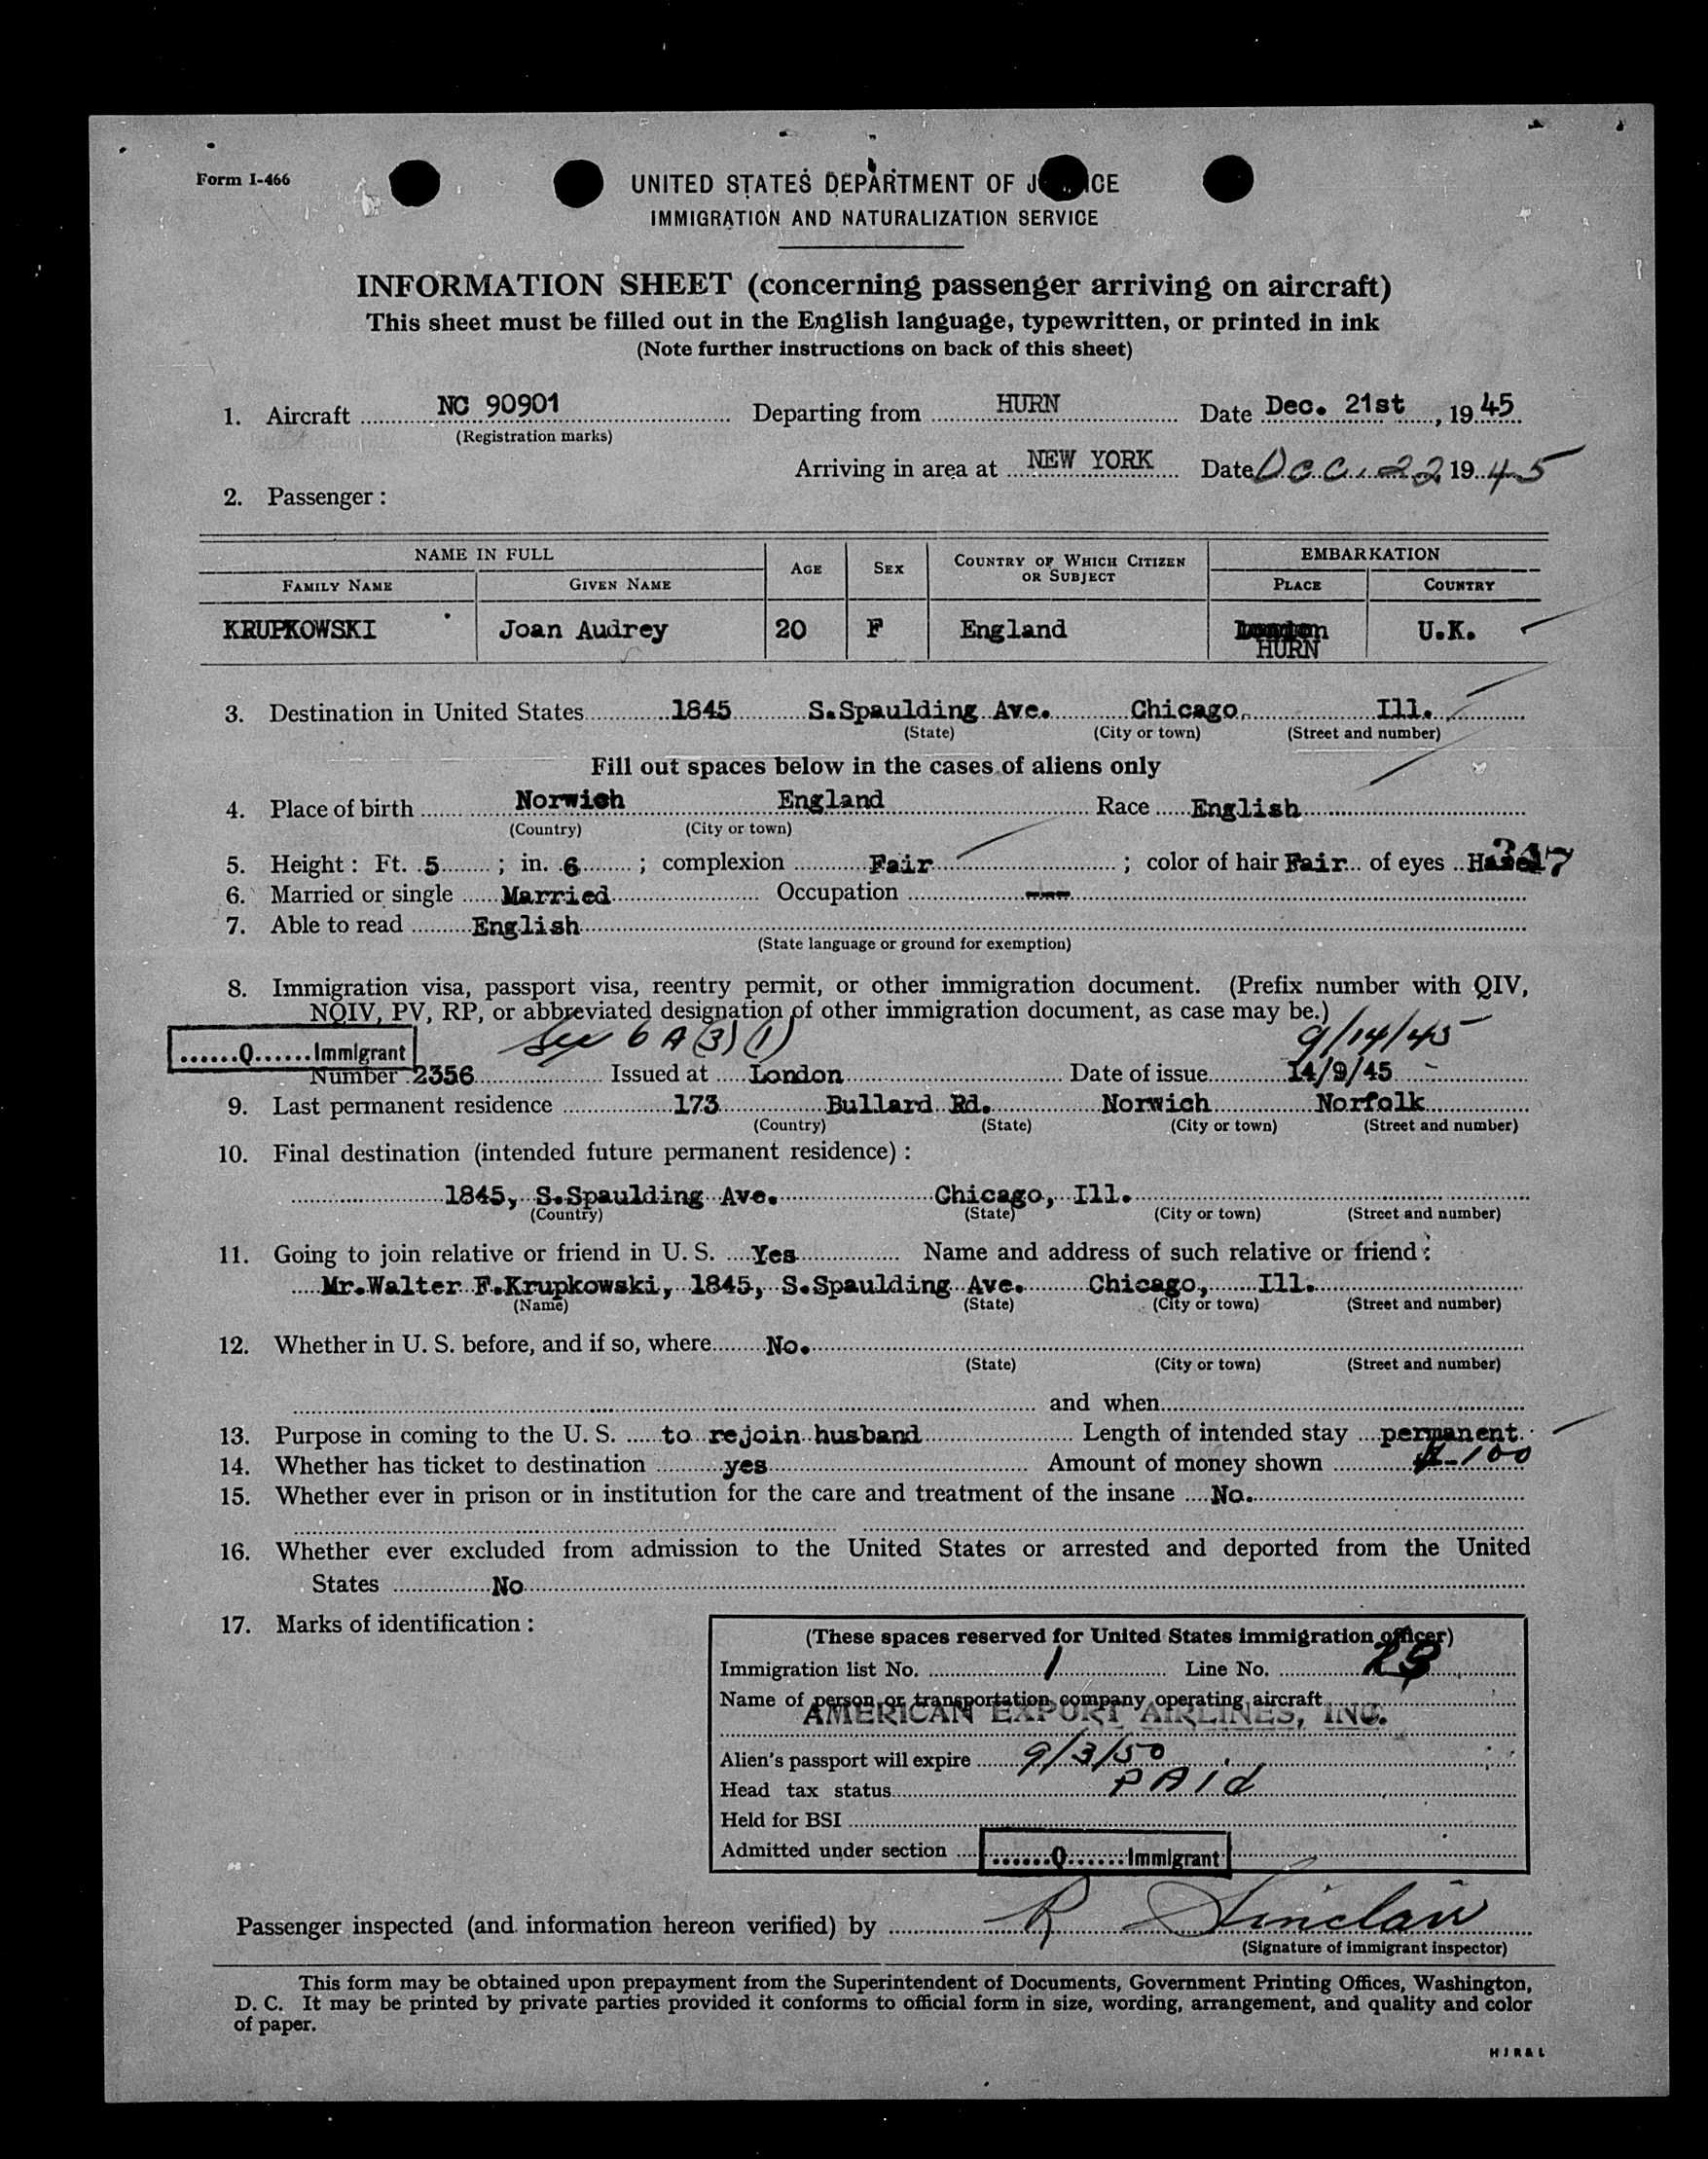 Form I-466
UNITED STATES DEPARTMENT OF J ICE
IMMIGRATION AND NATURALIZATION SERVICE
INFORMATION SHEET (concerning passenger arriving on aircraft)
This sheet must be filled out in the English language, typewritten, or printed in ink
(Note further instructions on back of this sheet)
1. Aircraft NC 90901 Departing from HURN Date Dec. 21st, 1945
(Registration marks)
Arriving in area at NEW YORK Date Dec. 22 1945
2. Passenger :
NAME IN FULL AGE SEX COUNTRY OF WHICH CITIZEN OR SUBJECT EMBARKATION
FAMILY NAME GIVEN NAME PLACE COUNTRY
KRUPKOWSKI Joan Audrey 20 F England London U.K.
HURN
3. Destination in United States 1845 S.Spaulding Ave. Chicago, Ill.
(State) (City or town) (Street and number)
Fill out spaces below in the cases of aliens only
4. Place of birth Norwich England Race English
(Country) (City or town)
5. Height : Ft. 5 ; in. 6 ; complexion Fair ; color of hair Fair of eyes Hazel
6. Married or single Married Occupation ---
7. Able to read English
(State language or ground for exemption)
8. Immigration visa, passport visa, reentry permit, or other immigration document. (Prefix number with QIV,
NQIV, PV, RP, or abbreviated designation of other immigration document, as case may be.)
Q Immigrant Sec 6 A (3) (1) 9/14/45
Number 2356 Issued at London Date of issue 14/9/45
9. Last permanent residence 173 Bullard Rd. Norwich Norfolk
(Country) (State) (City or town) (Street and number)
10. Final destination (intended future permanent residence) :
1845, S.Spaulding Ave. Chicago, Ill.
(Country) (State) (City or town) (Street and number)
11. Going to join relative or friend in U. S. Yes Name and address of such relative or friend :
Mr.Walter F.Krupkowski, 1845, S.Spaulding Ave. Chicago, Ill.
(Name) (State) (City or town) (Street and number)
12. Whether in U. S. before, and if so, where No.
(State) (City or town) (Street and number)
and when
13. Purpose in coming to the U. S. to rejoin husband Length of intended stay permanent.
14. Whether has ticket to destination yes Amount of money shown $-100
15. Whether ever in prison or in institution for the care and treatment of the insane No.
16. Whether ever excluded from admission to the United States or arrested and deported from the United
States No
17. Marks of identification :
(These spaces reserved for United States immigration officer)
Immigration list No. 1 Line No.
Name of person or transportation company operating aircraft
AMERICAN EXPORT AIRLINES, INC.
Alien's passport will expire 9/3/50
Head tax status PAId
Held for BSI
Admitted under section Q Immigrant
Passenger inspected (and information hereon verified) by R Sinclair
(Signature of immigrant inspector)
This form may be obtained upon prepayment from the Superintendent of Documents, Government Printing Offices, Washington,
D. C. It may be printed by private parties provided it conforms to official form in size, wording, arrangement, and quality and color
of paper.